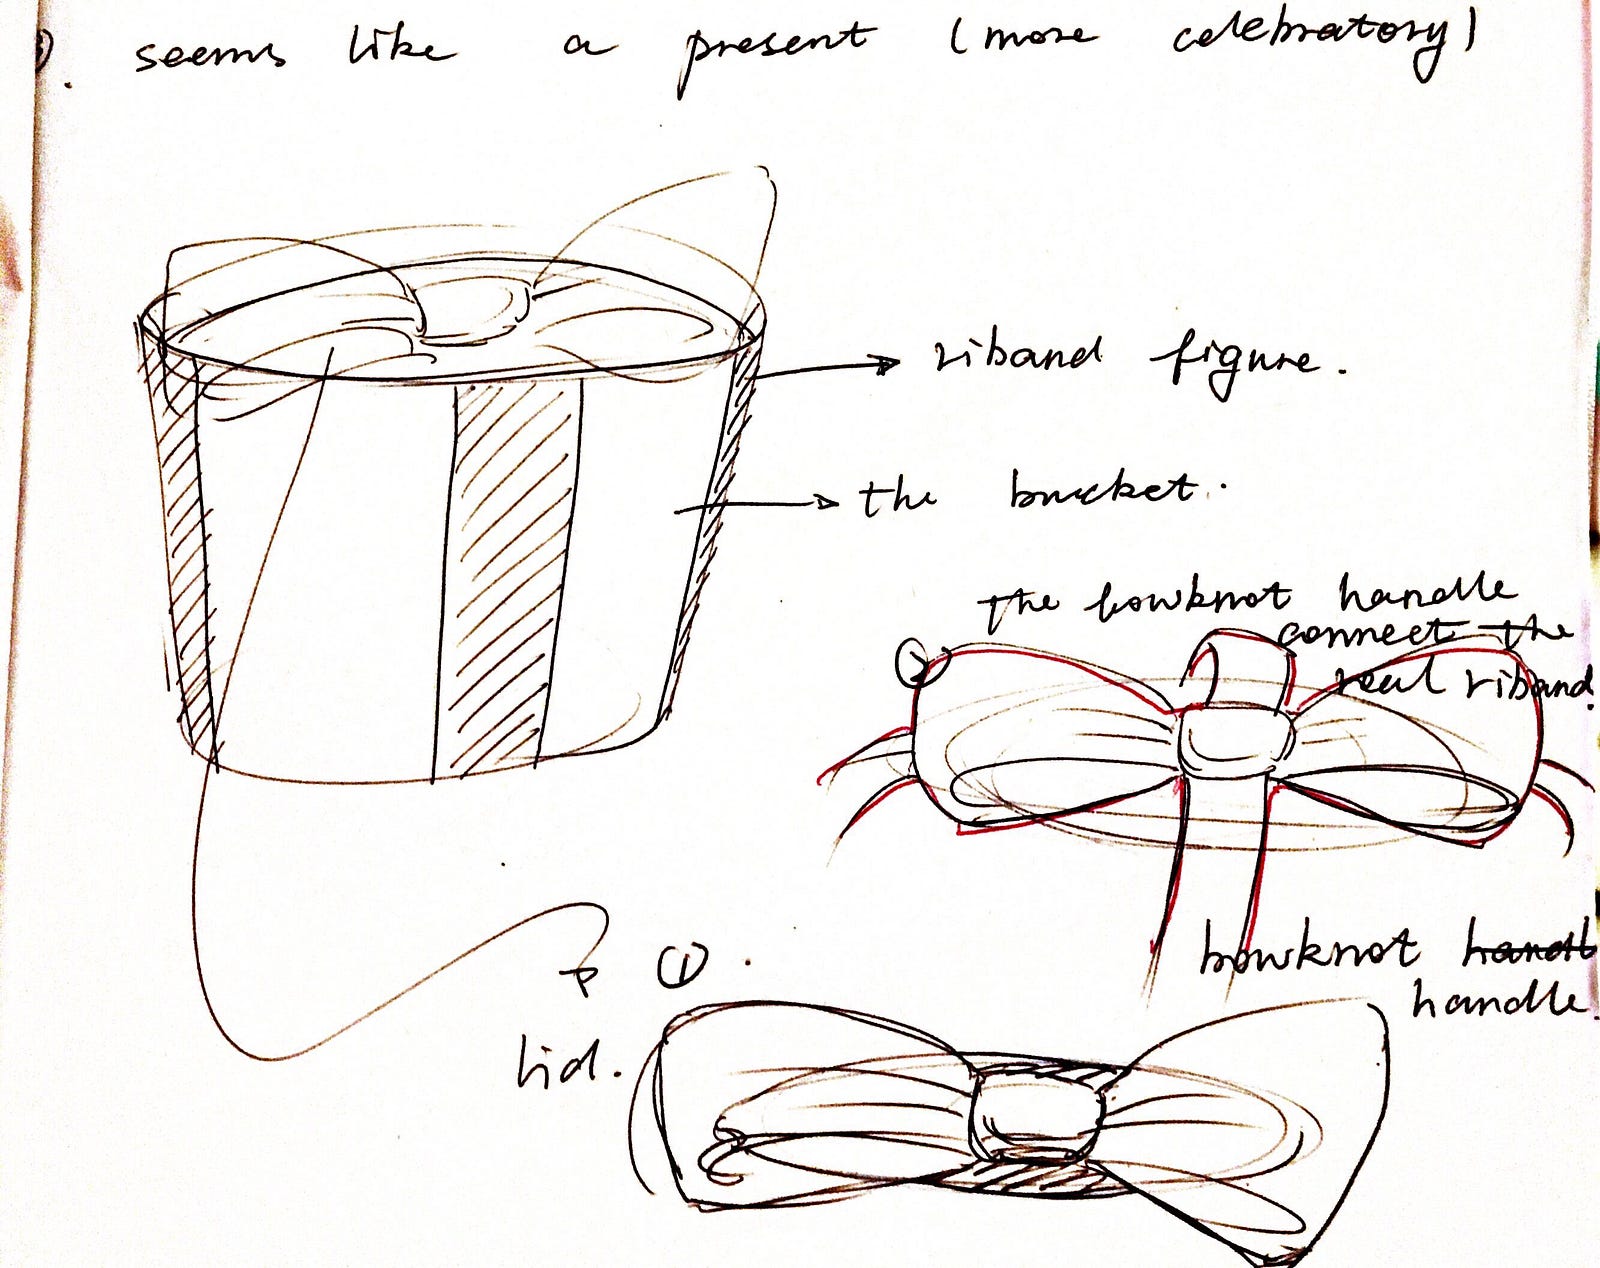 seems like a present (more celebratory)
riband figure.
the bucket.
the bowknot handle
connect the
real riband.
②
①.
bowknot handl
handle.
Lid.